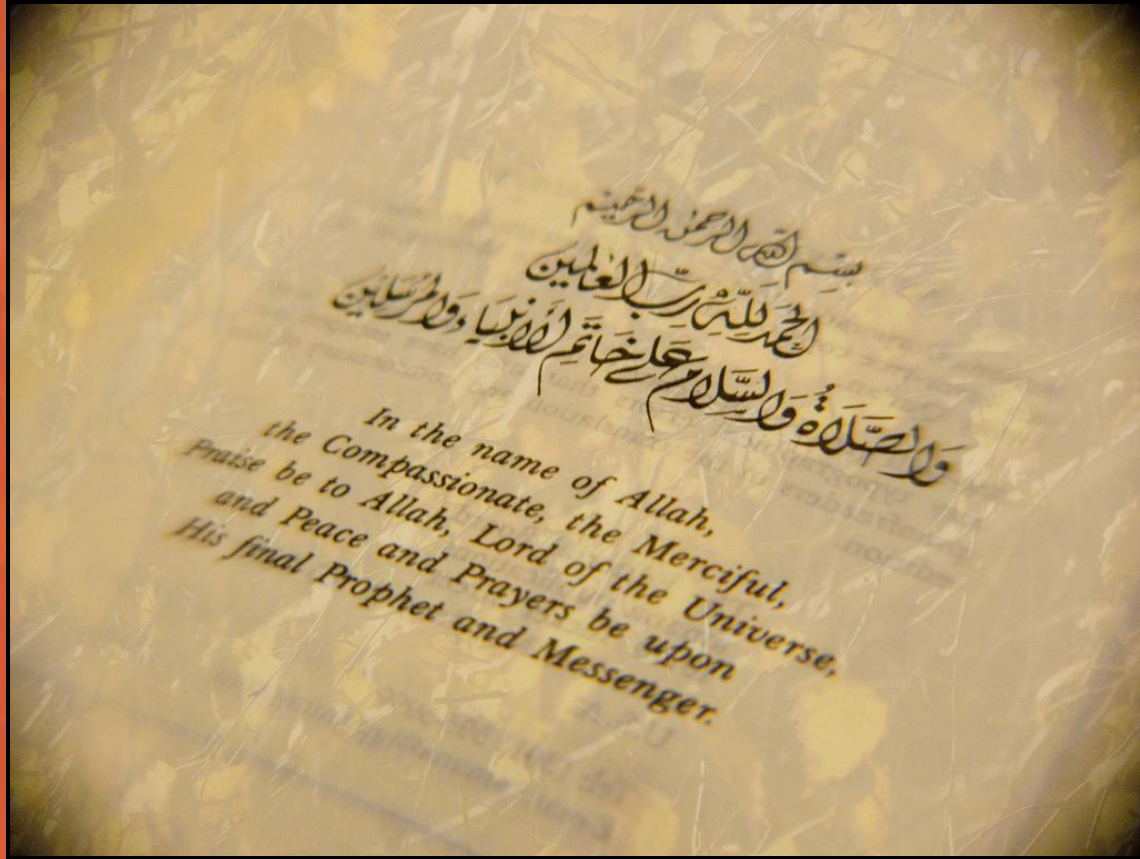 بِسْمِ اللهِ الرَّحْمٰنِ الرَّحِيْمِ
الْحَمْدُ لِلّٰهِ رَبِّ الْعَالَمِينَ
وَالصَّلَاةُ وَالسَّلَامُ عَلَى خَاتَمِ الْأَنْبِيَاءِ وَالْمُرْسَلِينَ
In the name of Allah,
the Compassionate, the Merciful,
Praise be to Allah, Lord of the Universe,
and Peace and Prayers be upon
His final Prophet and Messenger.